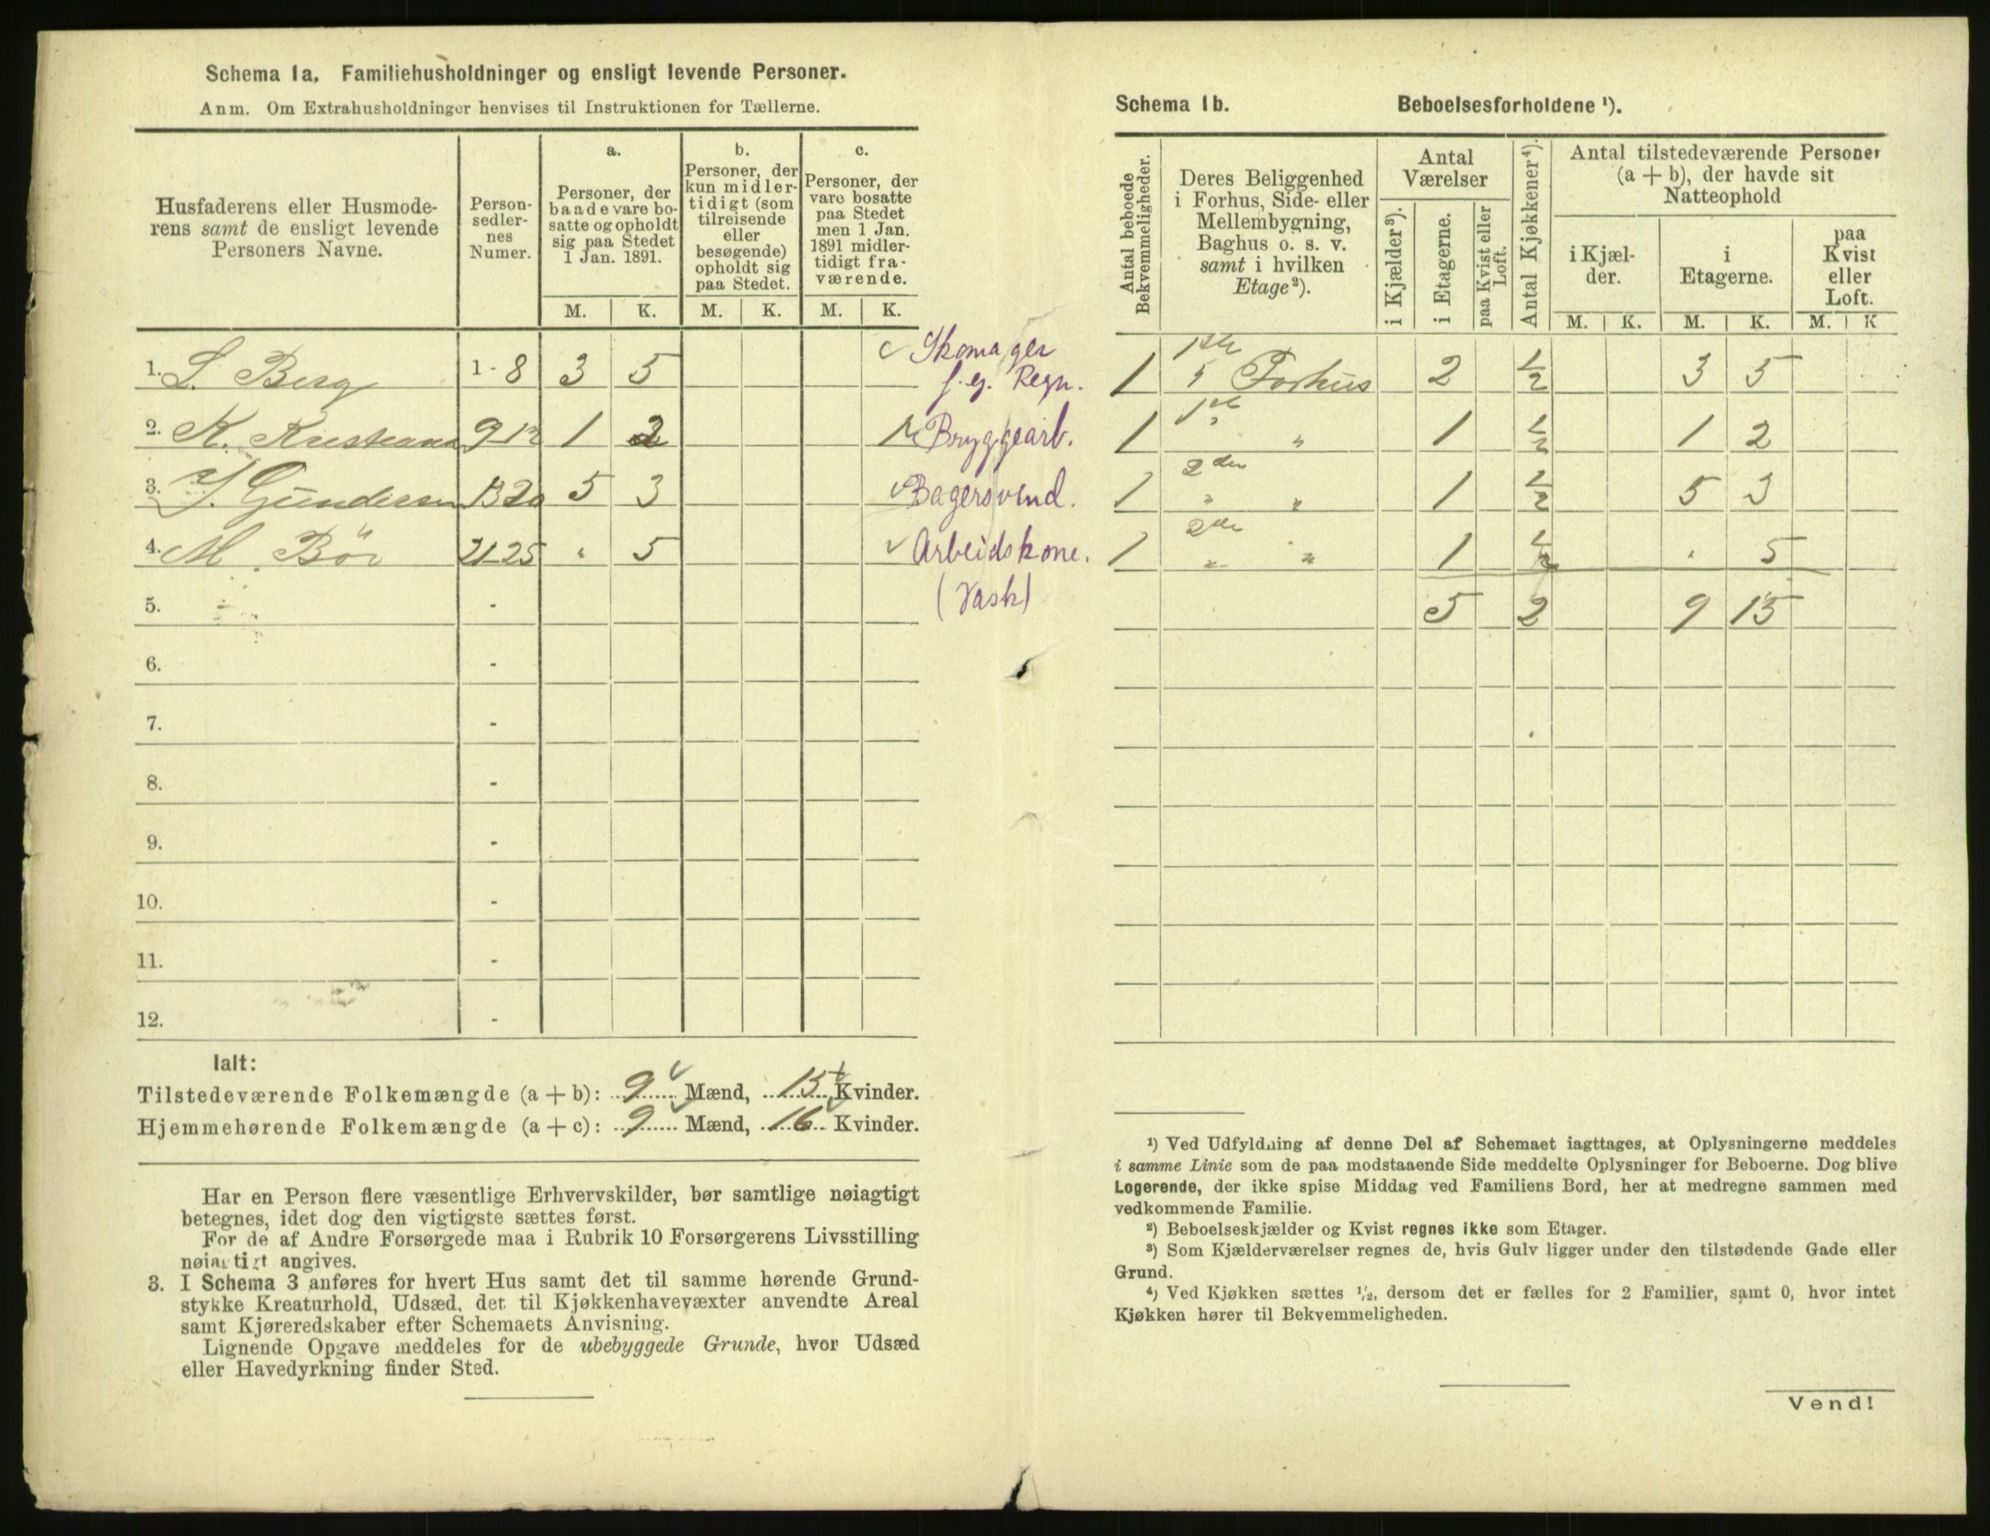 Schema 1a. Familiehusholdninger og ensligt levende Personer.
Anm. Om Extrahusholdninger henvises til Instruktionen for Tællerne.
Husfaderens eller Husmode-
rens samt de ensligt levende
Personers Navne.
Person-
sedler-
nes
Numer.
a.
Personer, der
baade vare bo-
satte og opholdt
sig paa Stedet
1 Jan. 1891.
b.
Personer, der
kun midler-
tidigt (som
tilreisende
eller
besøgende)
opholdt sig
paa Stedet.
c.
Personer, der
vare bosatte
paa Stedet
men 1 Jan.
1891 midler-
tidigt fra-
værende.
M. K. M. K. M. K.
1. L. Berg 1-8 3 5 Skomager
f. g. Regn.
2. K. 9 12 1 2 1 Bryggearb.
3. J. Gundersen 13 20 5 3 Bagersvend.
4. M. Bör 21-25 " 5 Arbeidskone.
(Vask)
5. -
6. -
7. -
8. -
9. -
10. -
11. -
12. -
Ialt:
Tilstedeværende Folkemængde (a + b): 9 Mænd, 15 Kvinder.
Hjemmehørende Folkemængde (a + c): 9 Mænd, 16 Kvinder.
Har en Person flere væsentlige Erhvervskilder, bør samtlige nøiagtigt
betegnes, idet dog den vigtigste sættes først.
For de af Andre Forsørgede maa i Rubrik 10 Forsørgerens Livsstilling
nøiagtigt angives.
3. I Schema 3 anføres for hvert Hus samt det til samme hørende Grund-
stykke Kreaturhold, Udsæd, det til Kjøkkenhavevæxter anvendte Areal
samt Kjøreredskaber efter Schemaets Anvisning.
Lignende Opgave meddeles for de ubebyggede Grunde, hvor Udsæd
eller Havedyrkning finder Sted.
Schema 1b. Beboelsesforholdene ¹).
Antal beboede
Bekvemmeligheder.
Deres Beliggenhed
i Forhus, Side- eller
Mellembygning,
Baghus o. s. v.
samt i hvilken
Etage²).
Antal
Værelser
i Kjælder³).
i Etagerne.
paa Kvist eller
Loft.
Antal Kjøkkener⁴).
Antal tilstedeværende Personer
(a + b), der havde sit
Natteophold
i Kjæl-
der.
i
Etagerne.
paa
Kvist
eller
Loft.
M. K. M. K. M. K
1 1ste Forhus 2 ½ 3 5
1 1ste " 1 ½ 1 2
1 2den " " 1 ½ 5 3
1 2den " " 1 ½ " 5
5 2 9 15
¹) Ved Udfyldning af denne Del af Schemaet iagttages, at Oplysningerne meddeles
i samme Linie som de paa modstaaende Side meddelte Oplysninger for Beboerne. Dog blive
Logerende, der ikke spise Middag ved Familiens Bord, her at medregne sammen med
vedkommende Familie.
²) Beboelseskjælder og Kvist regnes ikke som Etager.
³) Som Kjælderværelser regnes de, hvis Gulv ligger under den tilstødende Gade eller
Grund.
⁴) Ved Kjøkken sættes ½, dersom det er fælles for 2 Familier, samt 0, hvor intet
Kjøkken hører til Bekvemmeligheden.
Vend!